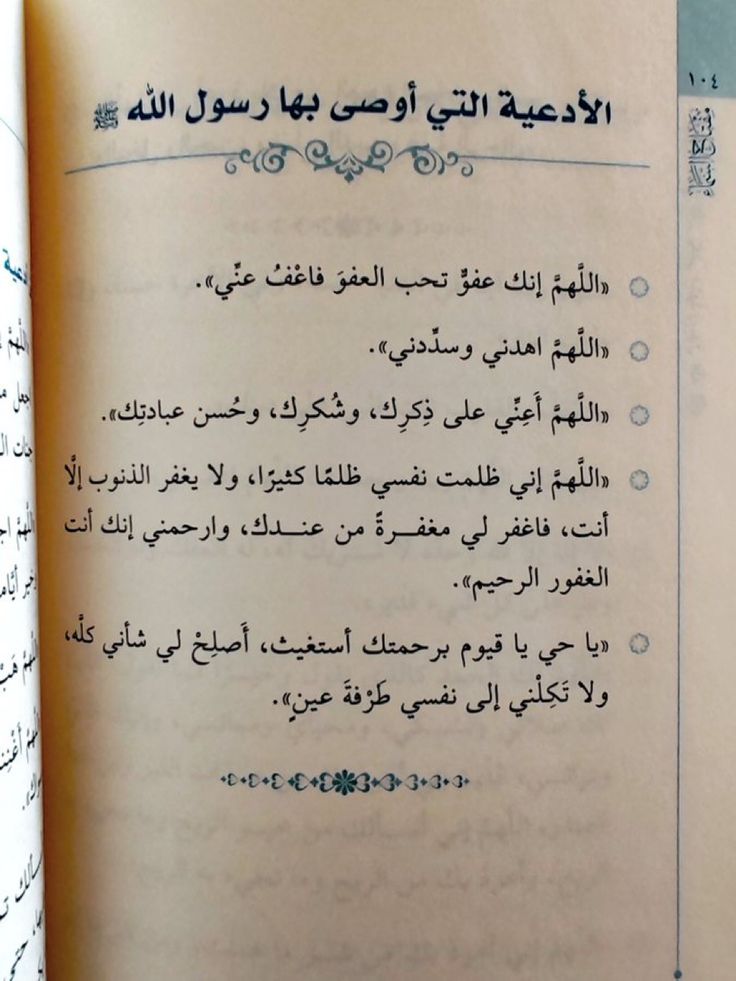 ١٠٤
الأدعية التي أوصى بها رسول الله ﷺ
«اللَّهمَّ إنك عفوٌّ تحب العفوَ فاعْفُ عنِّي».
«اللَّهمَّ اهدني وسدِّدني».
«اللَّهمَّ أَعِنِّي على ذِكرِك، وشُكرِك، وحُسن عبادتِك».
«اللَّهمَّ إني ظلمت نفسي ظلمًا كثيرًا، ولا يغفر الذنوب إلَّا
أنت، فاغفر لي مغفـــرةً من عنـــدك، وارحمني إنك أنت
الغفور الرحيم».
«يا حي يا قيوم برحمتك أستغيث، أَصلِحْ لي شأني كلَّه،
ولا تَكِلْني إلى نفسي طَرْفةَ عينٍ».